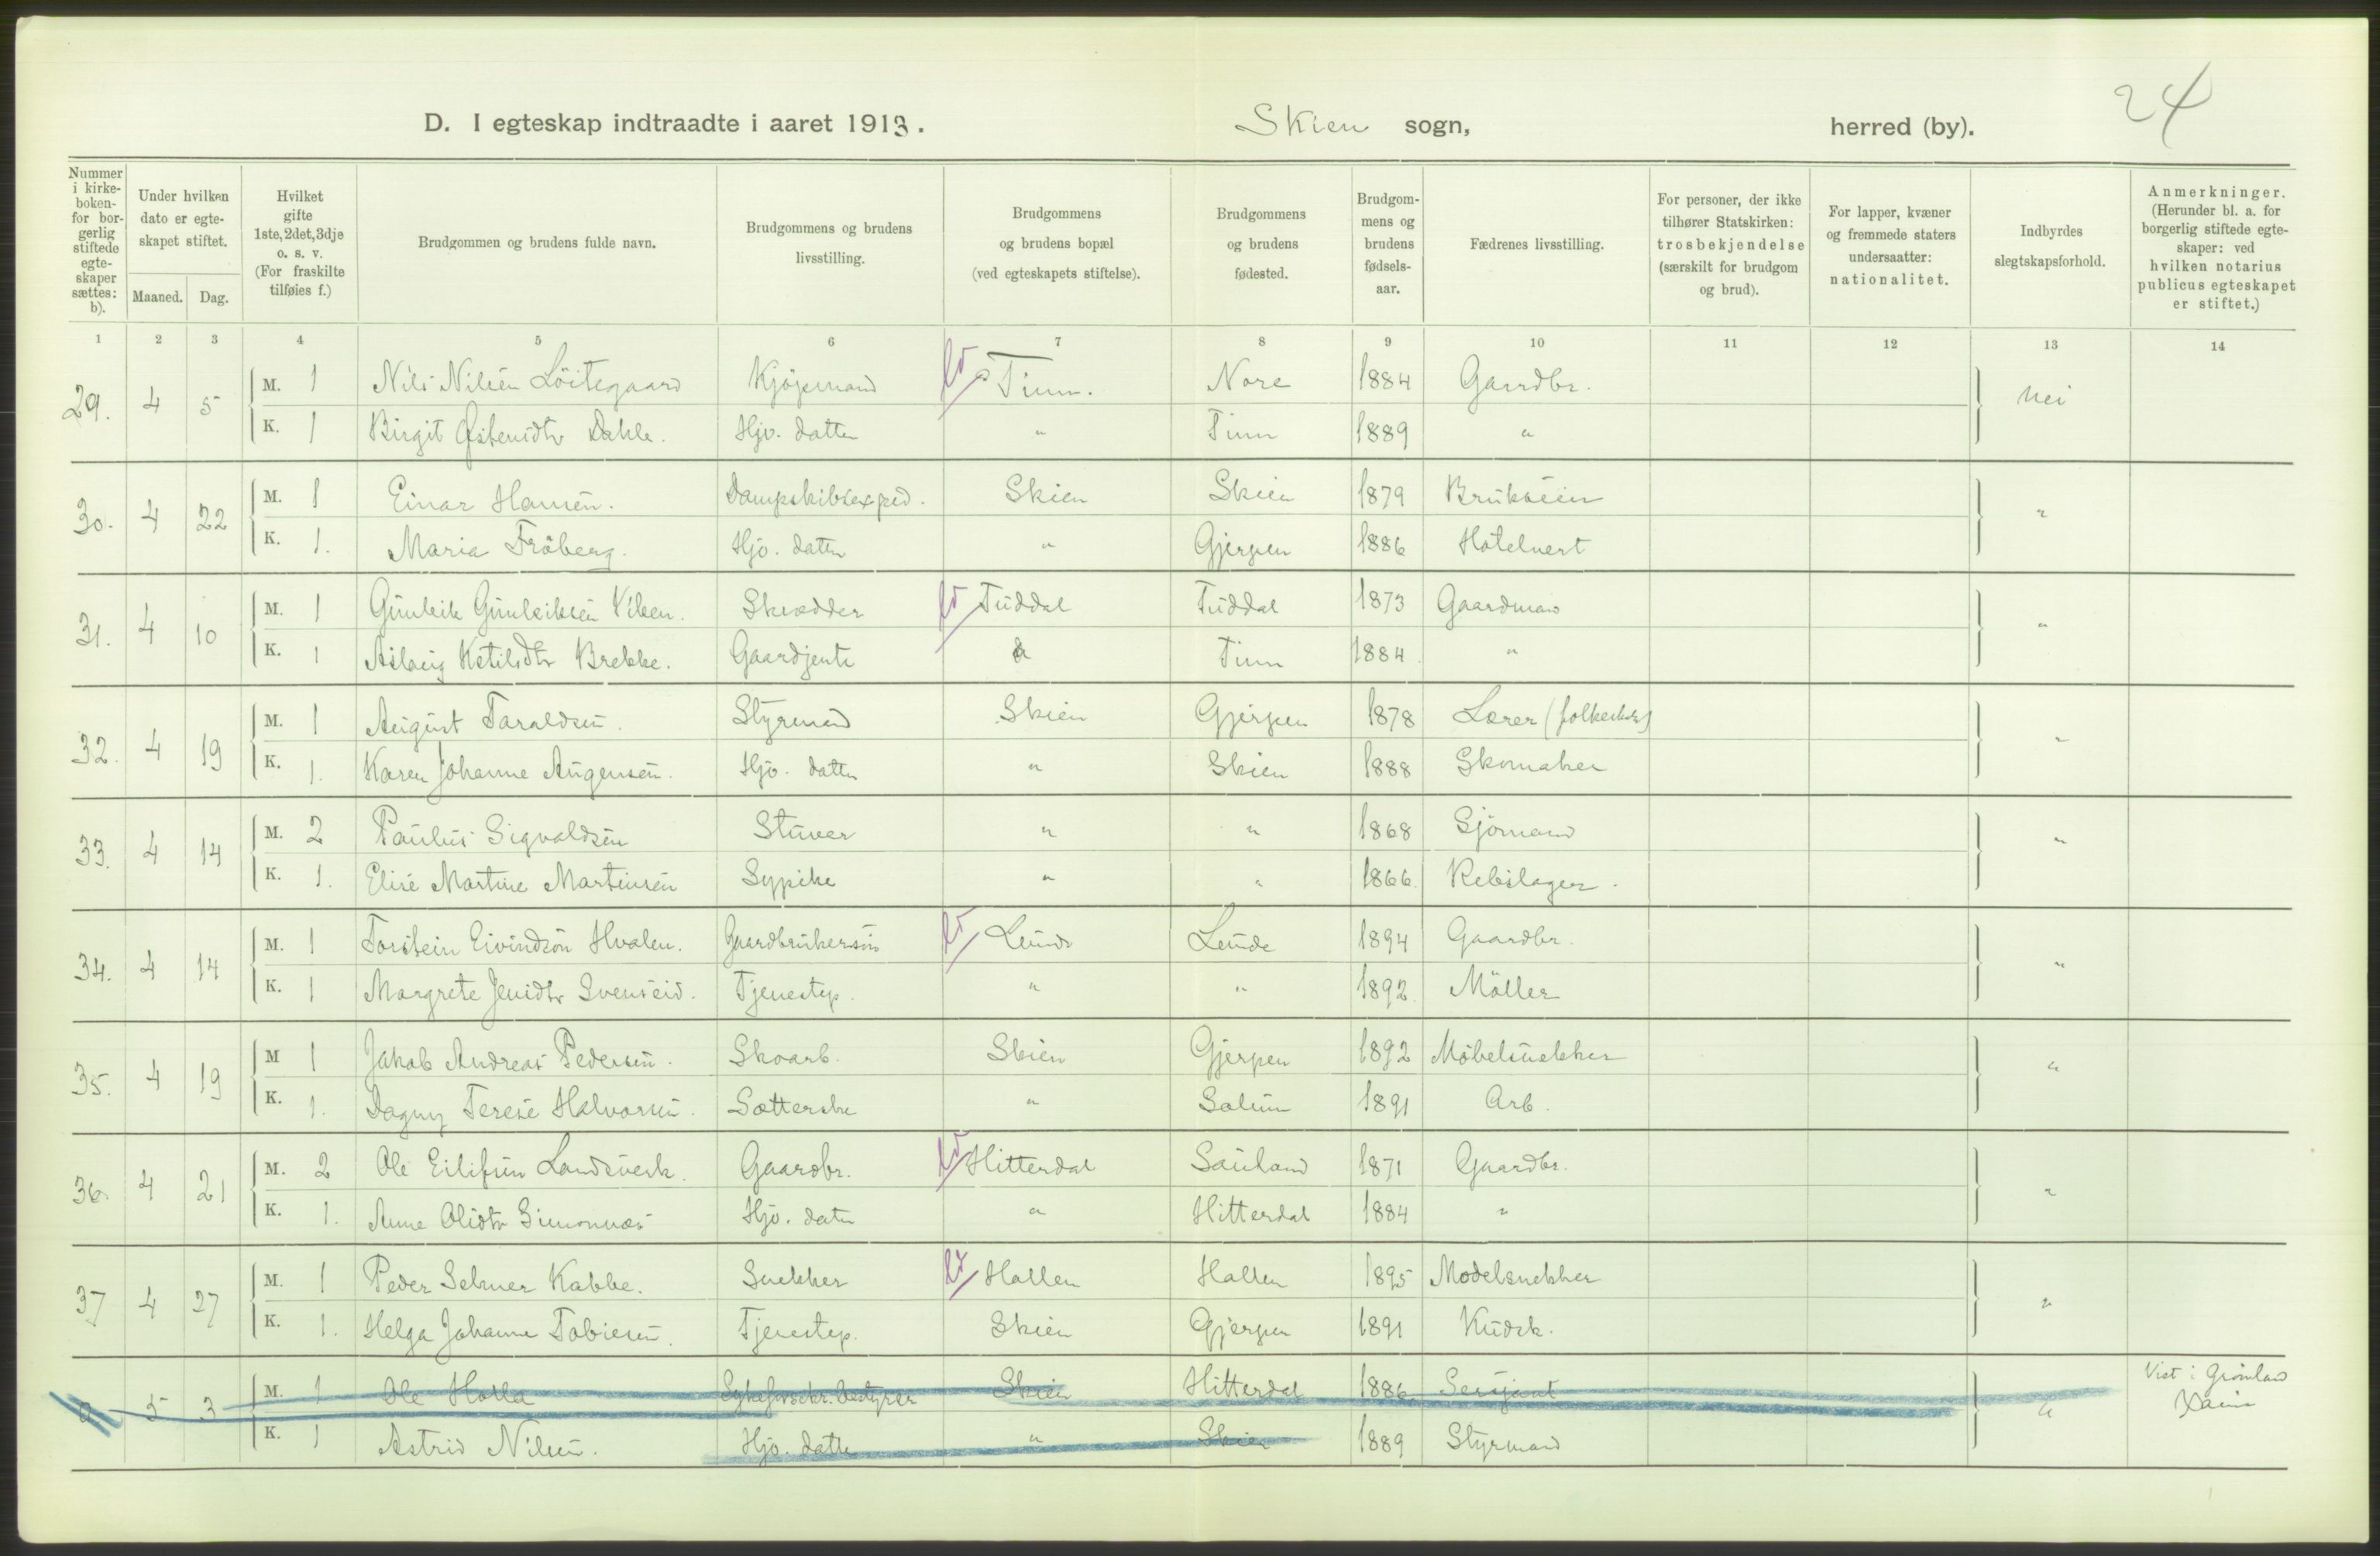 24
D. I egteskap indtraadte i aaret 1913. Skien sogn, herred (by).
Nummer i kirkeboken- for borgerlig stiftede egteskaper sættes: b).
Under hvilken dato er egteskapet stiftet.
Maaned. Dag.
Hvilket gifte 1ste, 2det, 3dje o. s. v. (For fraskilte tilføies f.)
Brudgommen og brudens fulde navn.
Brudgommens og brudens livsstilling.
Brudgommens og brudens bopæl (ved egteskapets stiftelse).
Brudgommens og brudens fødested.
Brudgommens og brudens fødselsaar.
Fædrenes livsstilling.
For personer, der ikke tilhører Statskirken: trosbekjendelse (særskilt for brudgom og brud).
For lapper, kvæner og fremmede staters undersaatter: nationalitet.
Indbyrdes slegtskapsforhold.
Anmerkninger. (Herunder bl. a. for borgerlig stiftede egteskaper: ved hvilken notarius publicus egteskapet er stiftet.)
1 2 3 4 5 6 7 8 9 10 11 12 13 14
29. 4 5 M. 1 Nils Nilsen Löitegaard Kjøpmand Tinn. Nore 1884 Gaardbr. Nei
K. 1 Birgit Østensdtr Dahle. Hjv. datter " Tinn 1889 "
30. 4 22 M. 1 Einar Hansen. Dampskibsexped. Skien Skien 1879 Brukseier "
K. 1. Maria Fröberg. Hjv. datter " Gjerpen 1886 Hotelvert
31. 4 10 M. 1 Gunleik Gunleiksen Skrædder Tuddal Tuddal 1873 Gaardmand "
K. 1 Aslaug Ketilsdtr Brekke. Gaardjente " Tinn 1884 "
32. 4 19 M. 1 August Taraldsen. Styrmand Skien Gjerpen 1878 Lærer (folkeskole) "
K. 1. Karen Johanne Augensen. Hjv. datter " Skien 1888 Skomaker
33. 4 14 M. 2 Paulus Sigvaldsen Stuver " " 1868 Sjömand "
K. 1. Elise Martine Martinsen Sypike " " 1866. Rebslager.
34. 4 14 M. 1 Torstein Eivindsön Hvalen. Gaardbrukersön Lunde Lunde 1894 Gaardbr. "
K. 1 Margrete Jensdtr Svenseid. Tjenestep. " " 1892. Möller
35. 4 19 M 1 Jakob Andreas Pedersen. Skoarb. Skien Gjerpen 1892 Möbelsnekker "
K. 1. Dagny Terese Halvorsen. Sætterske " Solum 1891 Arb.
36. 4 21 M. 2 Ole Eilifsen Landsverk. Gaardbr. Hitterdal Sauland 1871 Gaardbr. "
K. 1. Anne Olsdtr Simonnæs Hjv. dater " Hitterdal 1884 "
37 4 27 M. 1 Peder Selmer Kabbe. Snekker Hollen Hollen 1895 Modelsnekker "
K. 1. Helga Johanne Tobiesen. Tjenestep. Skien Gjerpen 1891 Kudsk.
5 3 M. 1 Ole Holla Skien Hitterdal 1886 Sersjant " Viet i Grönland
K. 1 Astrid Nilsen. Hjv. datter " Skien 1889 Styrmand